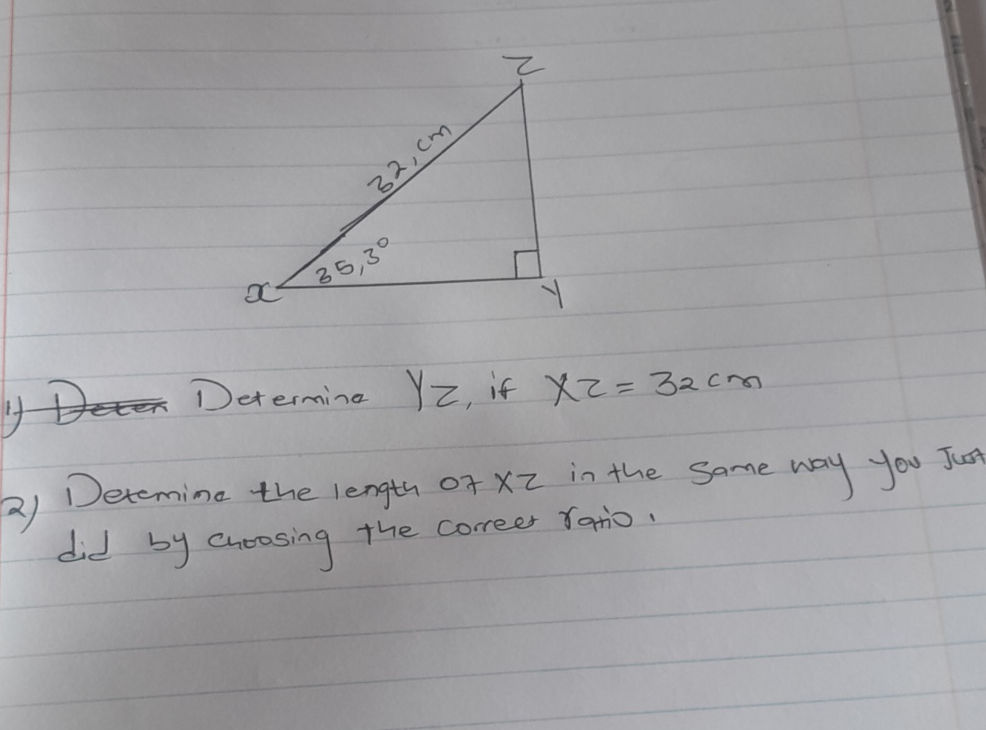 Z
32,cm
35,3°
x
Y
1) Deten Determine YZ, if XZ = 32 cm
2) Detemine the length of XZ in the same way you Just
did by choosing the correet ratio.